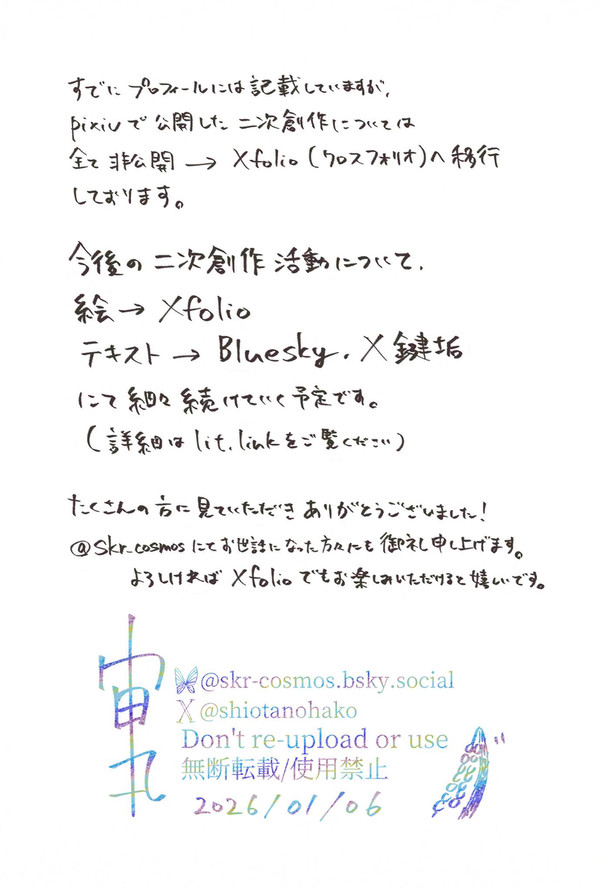 すでに プロフィールには記載していますが、
pixivで公開した二次創作については
全て非公開 → Xfolio (クロスフォリオ)へ移行
しております。
今後の二次創作活動について、
絵→ Xfolio
テキスト → Bluesky、X鍵垢
にて細々続けていく予定です。
(詳細は lit.linkをご覧ください)
たくさんの方に見ていただき ありがとうございました!
@skr_cosmosにてお世話になった方々にも御礼申し上げます。
よろしければ Xfolioでもお楽しみいただけると嬉しいです。
@skr-cosmos.bsky.social
X @shiotanohako
Don't re-upload or use
無断転載/使用禁止
2026/01/06